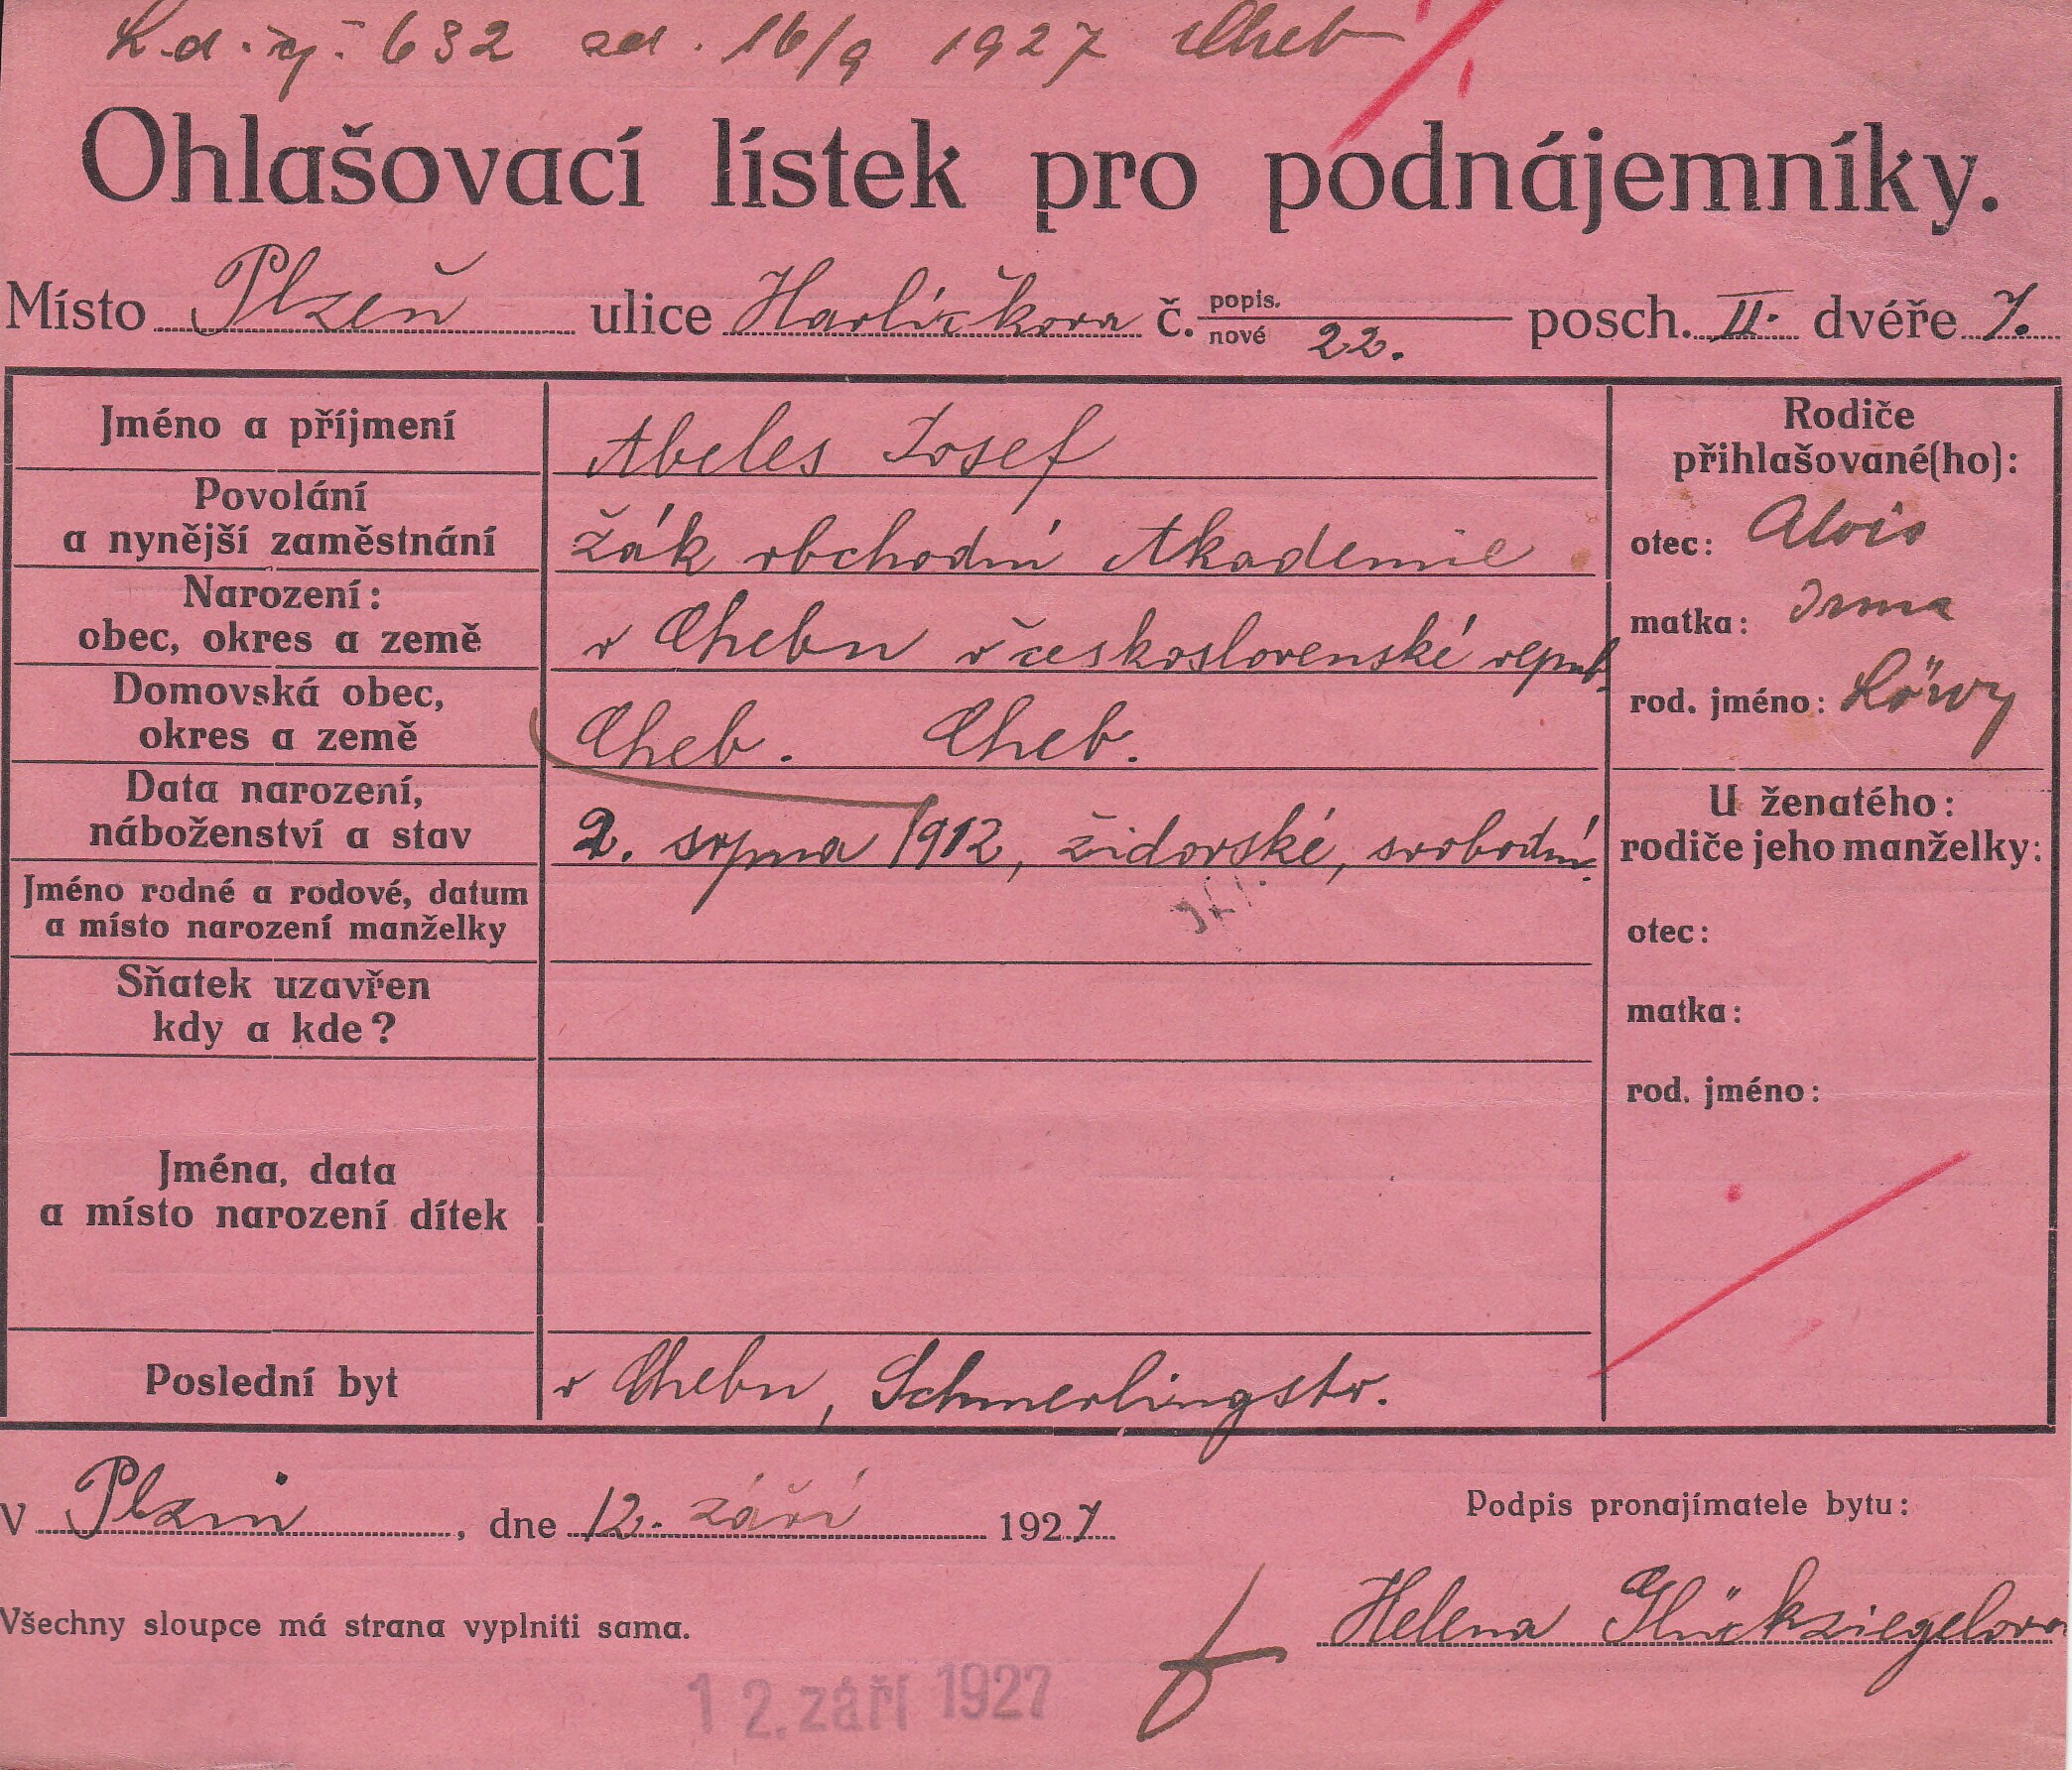 632 16/9 1927 Cheb
Ohlašovací lístek pro podnájemníky.
Místo Plzeň ulice Havlíčkova č. popis. posch. II. dvéře 7.
nové 22.
Jméno a příjmení Abeles Josef
Povolání
a nynější zaměstnání žák obchodní Akademie
Narození:
obec, okres a země v Chebu v československé repub.
Domovská obec,
okres a země Cheb. Cheb.
Data narození,
náboženství a stav 2. srpna 1912, židovské, svobodný.
Jméno rodné a rodové, datum
a místo narození manželky
Sňatek uzavřen
kdy a kde?
Jména, data
a místo narození dítek
Poslední byt v Chebu, Schmerlingstr.
Rodiče
přihlašované(ho):
otec: Alois
matka: Irma
rod. jméno: Löwy
U ženatého:
rodiče jeho manželky:
otec:
matka:
rod. jméno:
v Plzni, dne 12. září 1927
Podpis pronajímatele bytu:
Helena Glückziegelova
Všechny sloupce má strana vyplniti sama.
12. září 1927